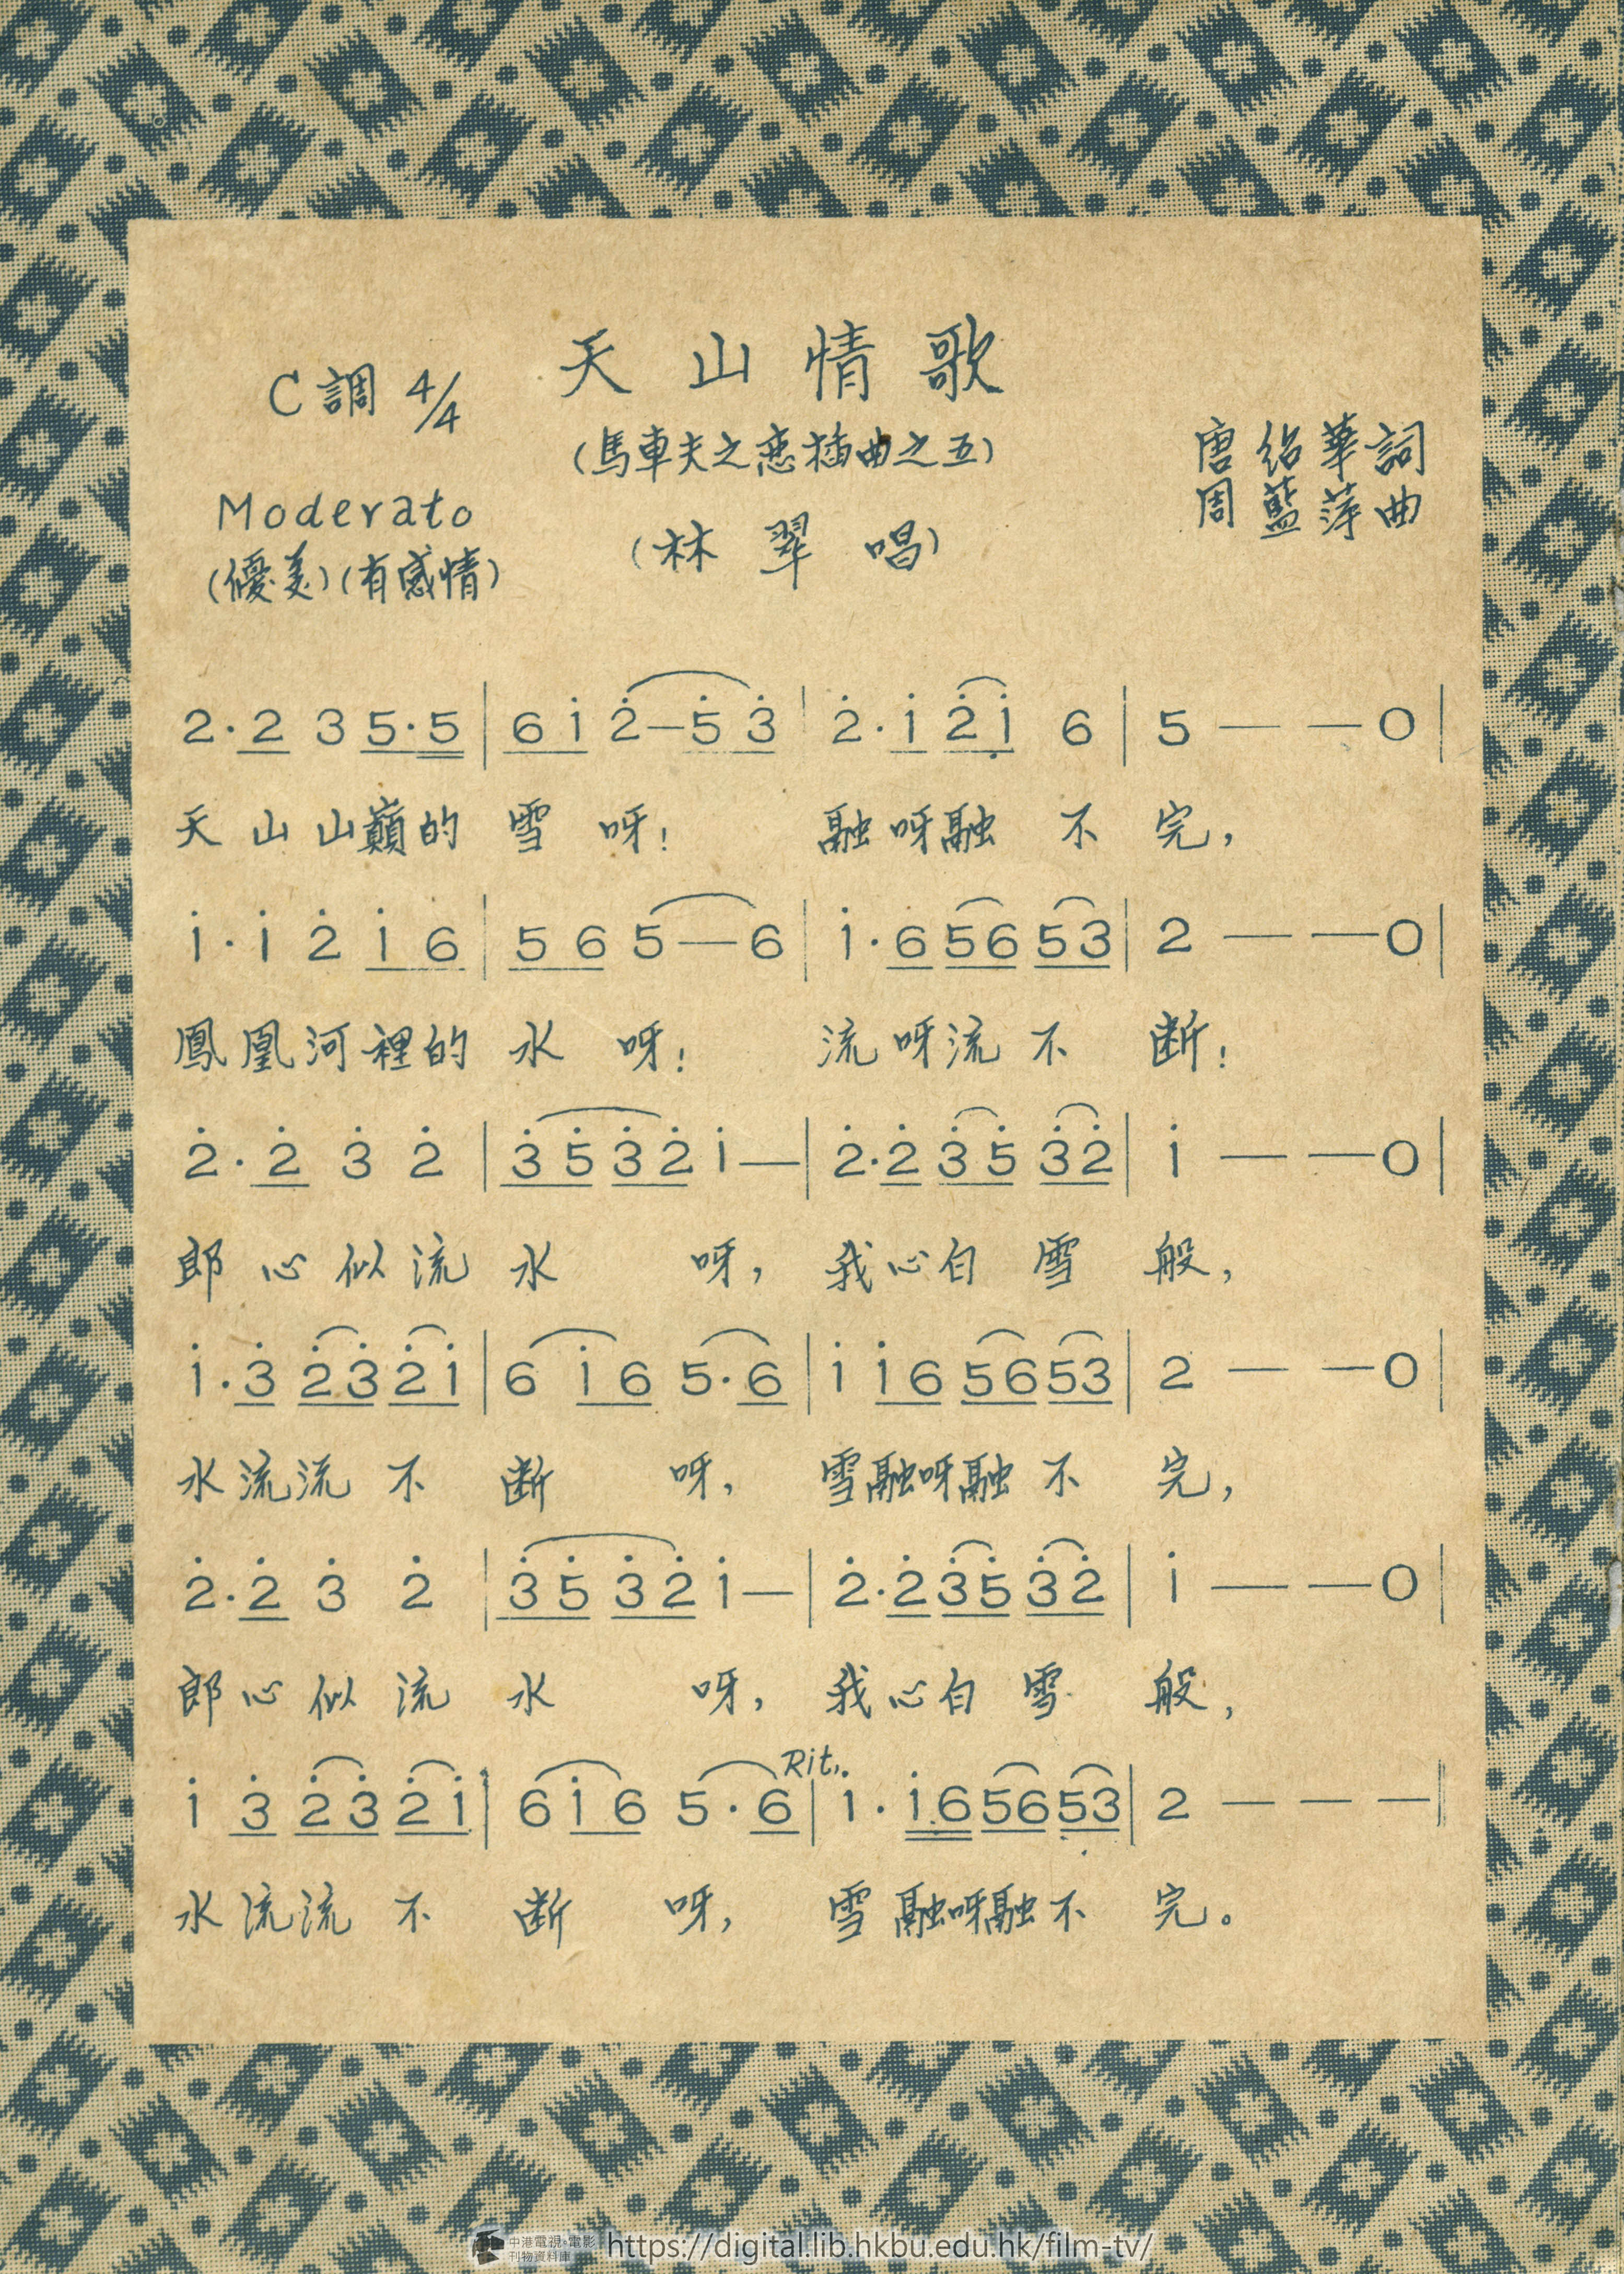 天山情歌
C調 4/4
(馬車夫之恋插曲之五)
唐紹華詞
周藍萍曲
Moderato
(林翠唱)
(優美)(有感情)
2·2 3 5·5 | 6 i̇ 2̇—5̇ 3̇ | 2̇·i̇ 2̇ i̇ 6 | 5 — — 0 |
天山山巔的雪呀! 融呀融不完,
i̇·i̇ 2̇ i̇ 6 | 5 6 5—6 | i̇·6 5 6 5 3 | 2 — — 0 |
鳳凰河裡的水呀! 流呀流不断!
2̇·2̇ 3̇ 2̇ | 3̇ 5̇ 3̇ 2̇ i̇— | 2̇·2̇ 3̇ 5̇ 3̇ 2̇ | i̇ — — 0 |
郎心似流水呀, 我心白雪般,
i̇·3̇ 2̇ 3̇ 2̇ i̇ | 6 i̇ 6 5·6 | i̇ i̇ 6 5 6 5 3 | 2 — — 0 |
水流流不断呀, 雪融呀融不完,
2̇·2̇ 3̇ 2̇ | 3̇ 5̇ 3̇ 2̇ i̇— | 2̇·2̇ 3̇ 5̇ 3̇ 2̇ | i̇ — — 0 |
郎心似流水呀, 我心白雪般,
Rit..
i̇ 3̇ 2̇ 3̇ 2̇ i̇ | 6 i̇ 6 5·6 | 1·i̇ 6 5 6 5 3 | 2 — — — ‖
水流流不断呀, 雪融呀融不完。
中港電視·電影
刊物資料庫
https://digital.lib.hkbu.edu.hk/film-tv/